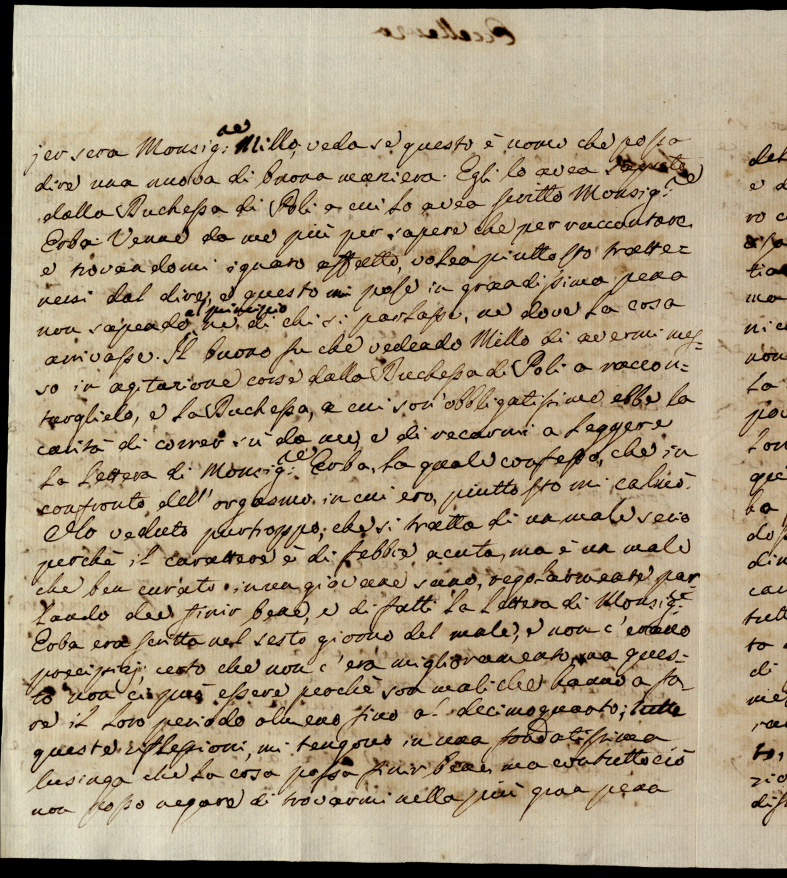 jer sera Monsig:re Millo, veda se questo è uomo che possa
dire una nuova di buona maniera. Egli lo avea saputo
dalla Duchessa di Poli a cui lo avea scritto Monsig:re
Erba. Venne da me più per sapere che per raccontare,
e trovandomi ignaro affatto, volea piuttosto tratte=
nersi dal dire, e questo mi pose in grandissima pena
non sapendo a principio ne di chi si parlasse, ne dove la cosa
arrivasse. Il buono fu che vedendo Millo di avermi mes=
so in agitazione corse dalla Duchessa di Poli a raccon=
targlielo, e la Duchessa, a cui son' obbligatissimo ebbe la
carità di correr sù da me, e di recarmi a leggere
la lettera di Monsig:re Erba, la quale confesso, che in
confronto dell'orgasmo in cui ero, piuttosto mi calmò.
Ho veduto purtroppo, che si tratta di un male serio
perchè il carattere è di febbre acuta, ma è un male
che ben curato in un giovane sano, regolarmente par
lando dee finir bene, e di fatti la lettera di Monsig:re
Erba era scritta nel sesto giorno del male, e non c'erano
precipizj; certo che non c'era miglioramento, ma ques=
to non ci può essere perchè son mali che hanno a fa=
re il loro periodo almeno fino al decimoquarto; tutte
queste riflessioni, mi tengono in una fondatissima
lusinga che la cosa possa finir bene, ma contuttociò
non posso negare di trovarmi nella più gran pena